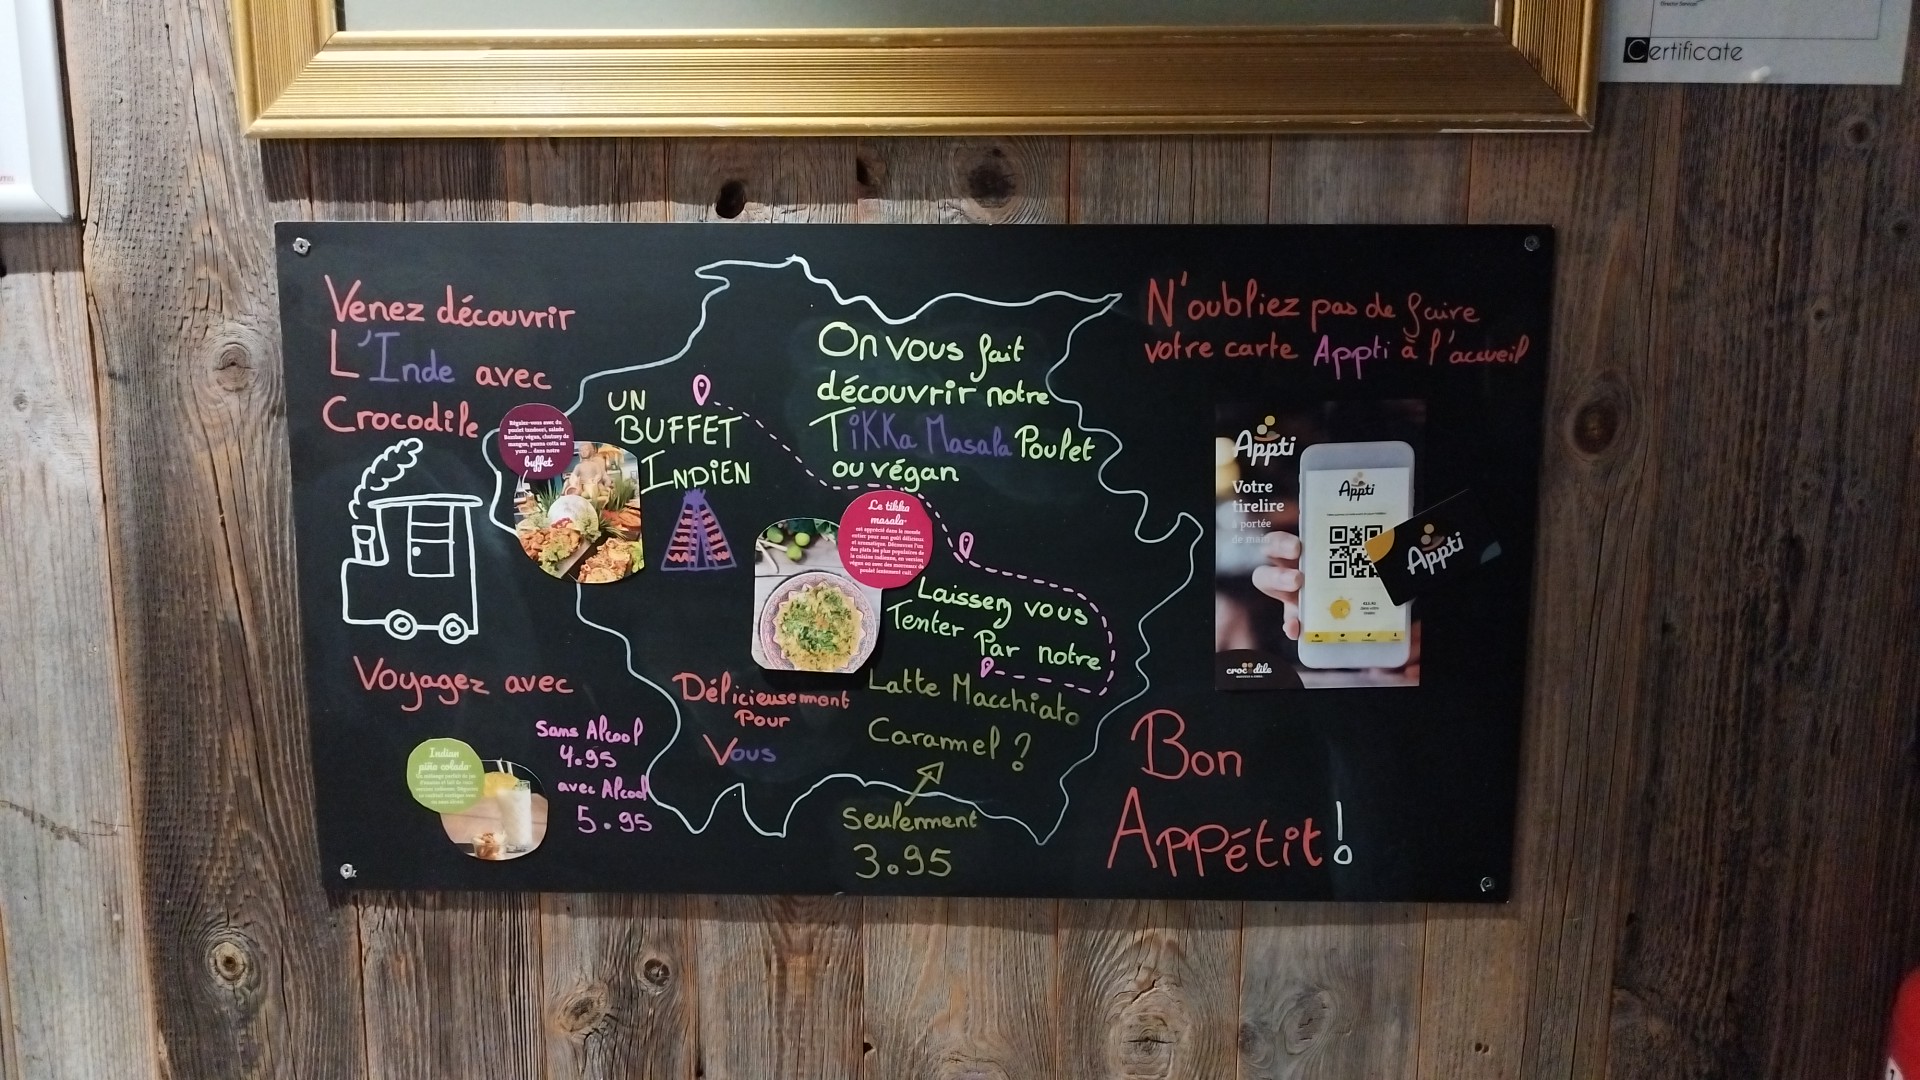 Certificate
Venez découvrir
L'Inde avec
Crocodile
UN
BUFFET
INDIEN
Régalez-vous avec du
poulet tandoori, salade
Bombay végan, chutney de
mangue, panna cotta au
yuzu ... dans notre
buffet
On vous fait
découvrir notre
TiKKa Masala Poulet
ou végan
Le tikka
masala
est apprécié dans le monde
entier pour son goût délicieux
et aromatique. Découvrez l'un
des plats les plus populaires de
la cuisine indienne, en version
végan ou avec des morceaux de
poulet lentement cuit.
Laissez vous
Tenter Par notre
Latte Macchiato
Caramel ?
Seulement
3.95
Délicieusement
Pour
Vous
Voyagez avec
Indian
piña colada
Sans Alcool
4.95
avec Alcool
5.95
N'oubliez pas de faire
votre carte Appti à l'accueil
Appti
Votre
tirelire
à portée
de main
Appti
Appti
crocodile
Bon
Appétit!